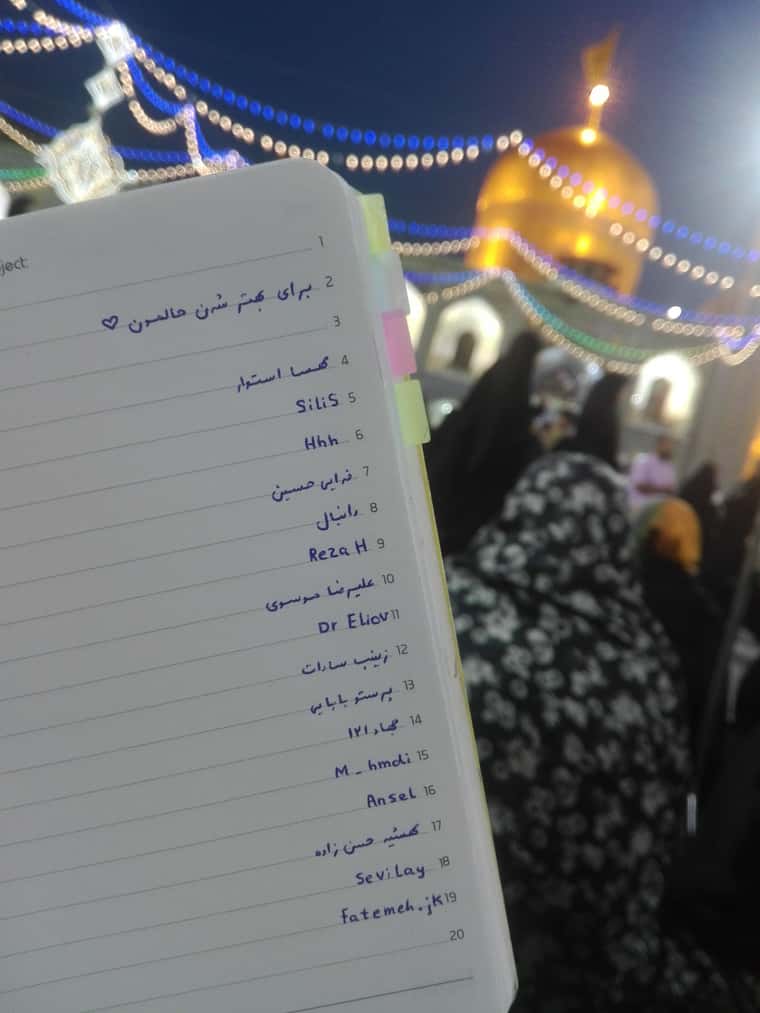 ject:
1
برای بهتر شدن حالمون ♡ 2
3
مهسا استوار 4
SiliS 5
Hhh 6
فدایی حسین 7
دانیال 8
Reza H 9
علیرضا موسوی 10
Dr Eliov 11
زینب سادات 12
پرستو بابایی 13
جهاد ۱۲۱ 14
M_hmdi 15
Ansel 16
حسن زاده 17
Sevilay 18
Fatemeh.jk 19
20